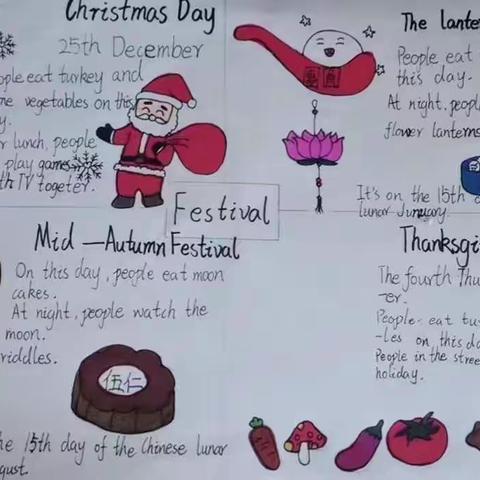 Christmas Day
25th December
ople eat turkey and
me vegetables on this
y.
r lunch, people
play games
th TV togeter.
The lanter
People eat
this day.
At night, peopl
flower lanterns
團 圓
It's on the 15th
lunar January.
Festival
Mid —Autumn Festival
On this day, people eat moon
cakes.
At night, people watch the
moon.
riddles.
伍仁
he 15th day of the Chinese lunar
gust.
Thanksgi
The fourth Thu
-er.
People eat tu
-les on this da
People in the stree
holiday.